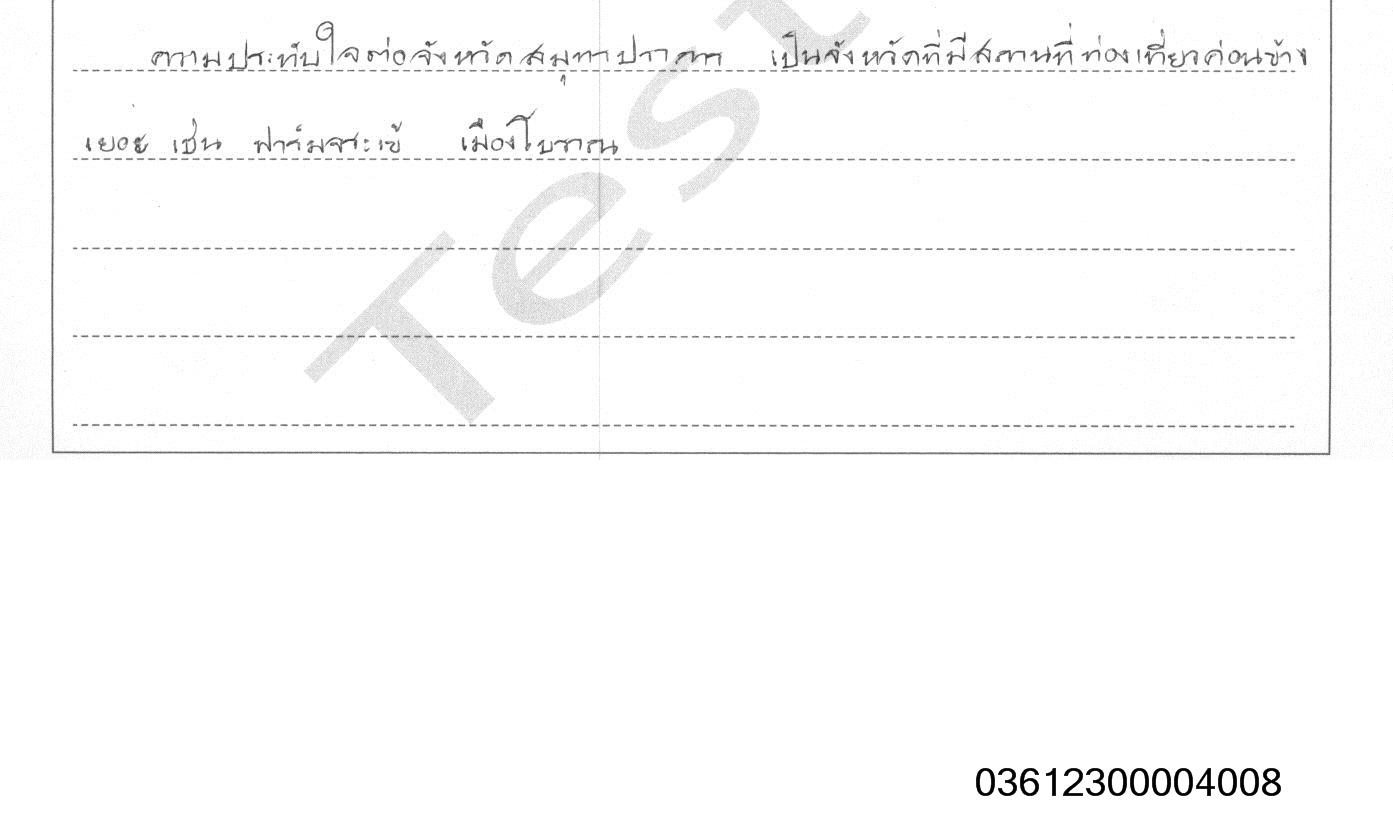 ความประทับใจต่อจังหวัดสมุทรปราการ เป็นจังหวัดที่มีสถานที่ท่องเที่ยวค่อนข้าง
เยอะ เช่น ฟาร์มจระเข้ เมืองโบราณ
Test
03612300004008